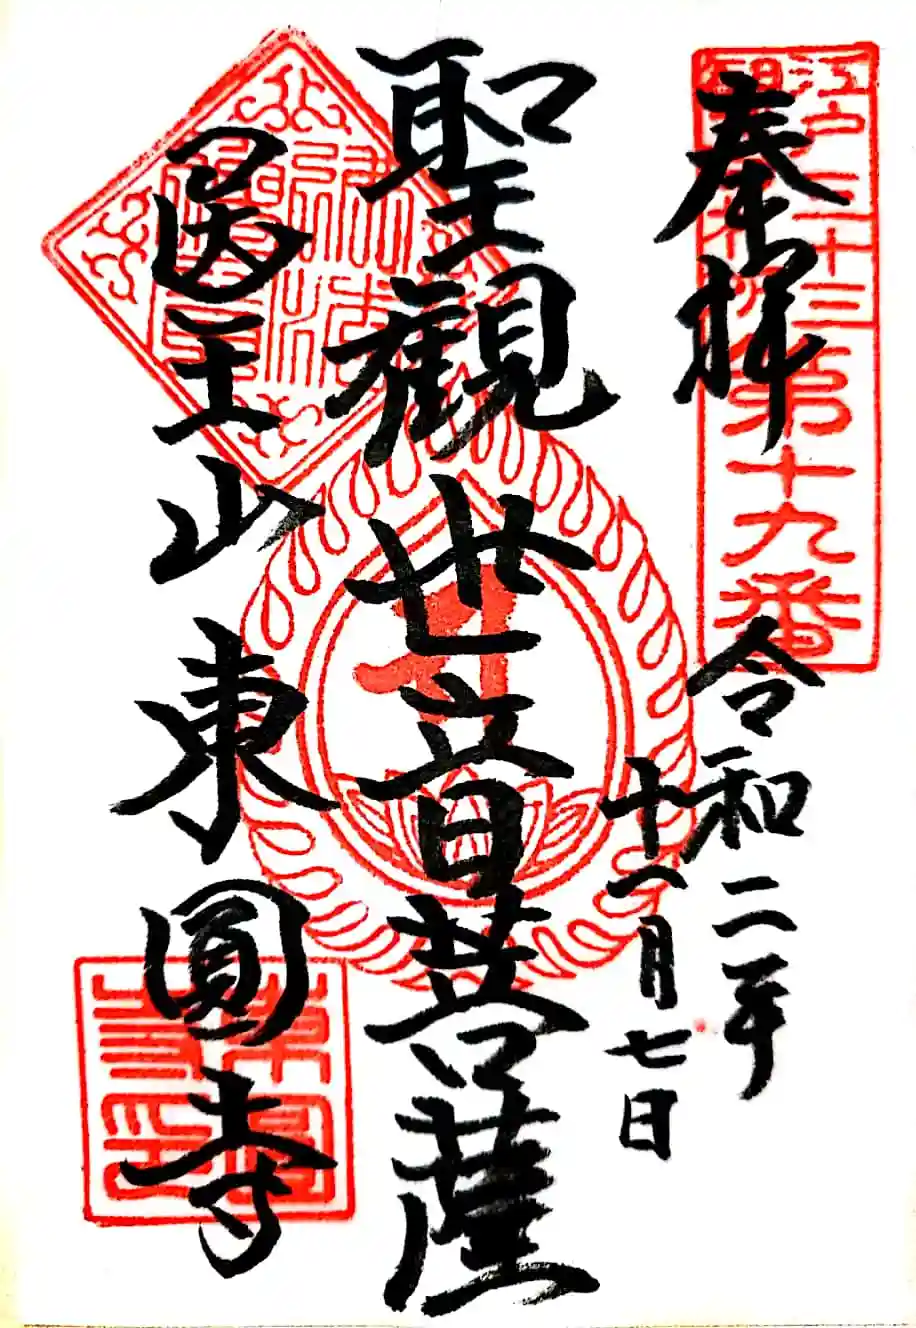 江戸三十三
観音札所
第十九番
奉拝
令和二年
十一月七日
聖観世音菩薩
王山東圓寺